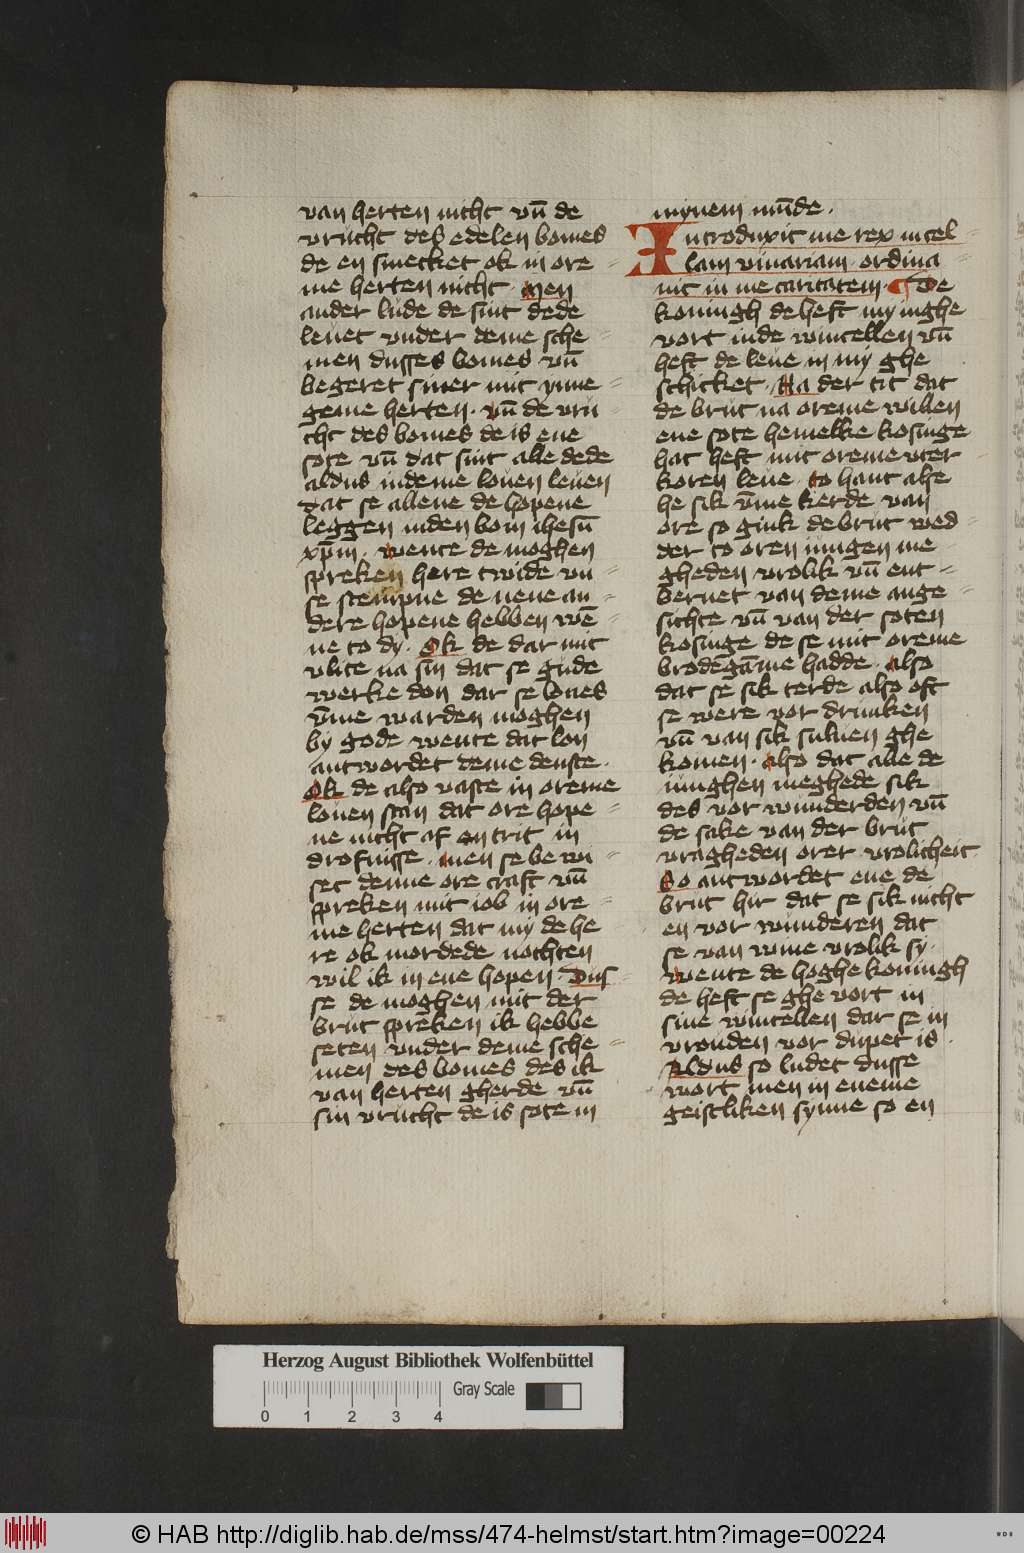 van herten nicht vn̄ de
vrucht des edelen bomes
de en smecket ok in ore
me herten nicht · Men
ander lude de sint de de
leuet vnder deme sche
men dusses bomes vn̄
begeret siner mit ynne
geme herten · vn̄ de vru
cht des bomes de is ene
sote vn̄ dat sint alle de de
aldus in deme louen leuen
dat se allene de hopene
leggen in den bom ihesū
xp̄m · wente de moghen
spreken here twide vn
se stempne de nene an
dere hopene hebben wē
ne to dy · Ok de dar mit
vlite na sin dat se gude
werke don dar se lones
v̄me warden moghen
by gode wente dat lon
antwordet deme denste ·
Ok de also vaste in oreme
louen stan dat ore hope
ne nicht af en trit in
drofnisse · men se be wi
set denne ore craft vn̄
spreken mit iob in ore
me herten dat my de he
re ok mordede nochten
wil ik in ene hopen · Dus
se de moghen mit der
brut sprēken ik hebbe
seten vnder deme sche
men des bomes des ik
van herten gherde vn̄
sin vrucht de is sote in
mynem mūde ·
Introduxit me rex in cel
lam vinariam ordina
uit in me caritatem · De
koningh de heft my inghe
vort in de wincellen vn̄
heft de leue in my ghe
schicket · Na der tit dat
de brut na oreme willen
ene sote hemelke kosinge
hat heft mit oreme vter
koren leue · to hant alse
he sik v̄me kerde van
ore so gink de brut wed
der to oren iungen me
gheden vrolik vn̄ ent
bernet van deme ange
sichte vn̄ van der soten
kosinge de se mit oreme
brodegāme hadde · also
dat se sik terde also oft
se were vor drunken
vn̄ van sik suluen ghe
komen · also dat alle de
iunghen meghede sik
des vor wunderden vn̄
de sake van der brut
vragheden orer vrolicheit
So antwordet ene de
brut hir dat se sik nicht
en vor wunderen dat
se van wine vrolik sy ·
wente de hoghe koningh
de heft se ghe vort in
sine wincellen dar se in
vrouden vor dupet is ·
Aldus so ludet dusse
wort men in eneme
geistliken synne so en
Herzog August Bibliothek Wolfenbüttel
Gray Scale
0 1 2 3 4
© HAB http://diglib.hab.de/mss/474-helmst/start.htm?image=00224